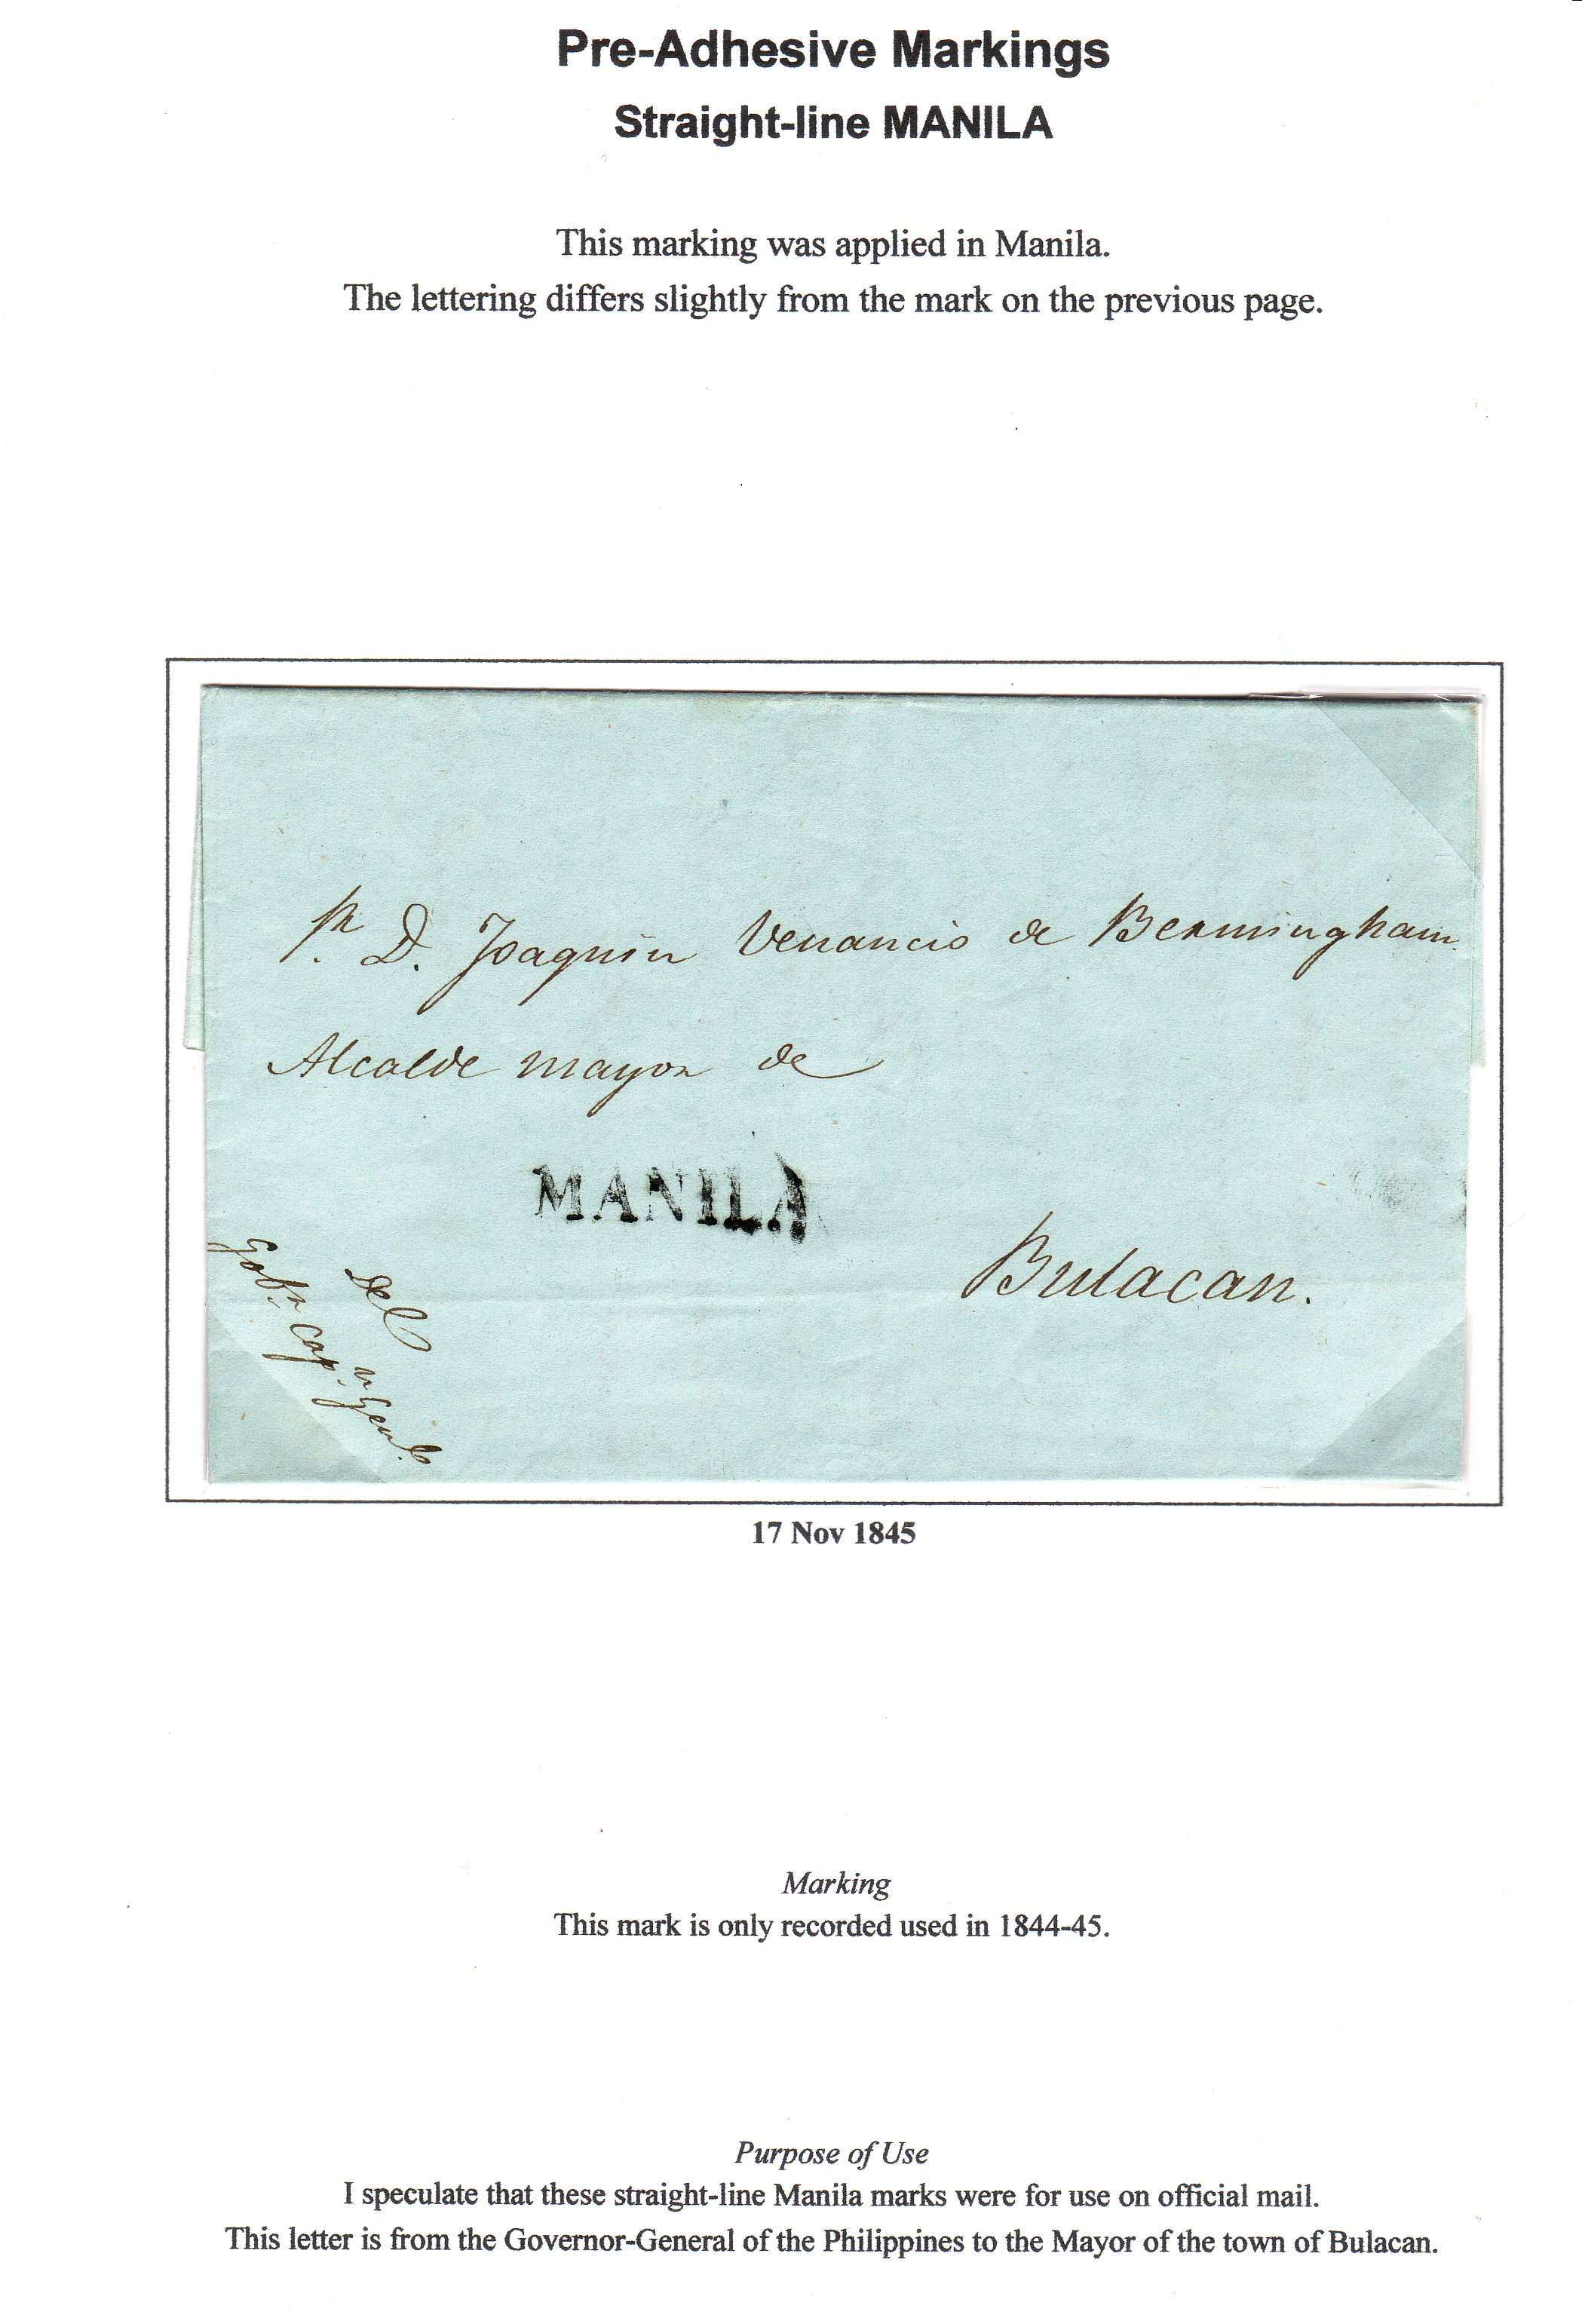 Pre-Adhesive Markings
Straight-line MANILA
This marking was applied in Manila.
The lettering differs slightly from the mark on the previous page.
D. Joaquin Venancio de Bermingham.
Alcalde mayor de
MANILA
Bulacan.
Del
Gobr. Capn. Genl.
17 Nov 1845
Marking
This mark is only recorded used in 1844-45.
Purpose of Use
I speculate that these straight-line Manila marks were for use on official mail.
This letter is from the Governor-General of the Philippines to the Mayor of the town of Bulacan.